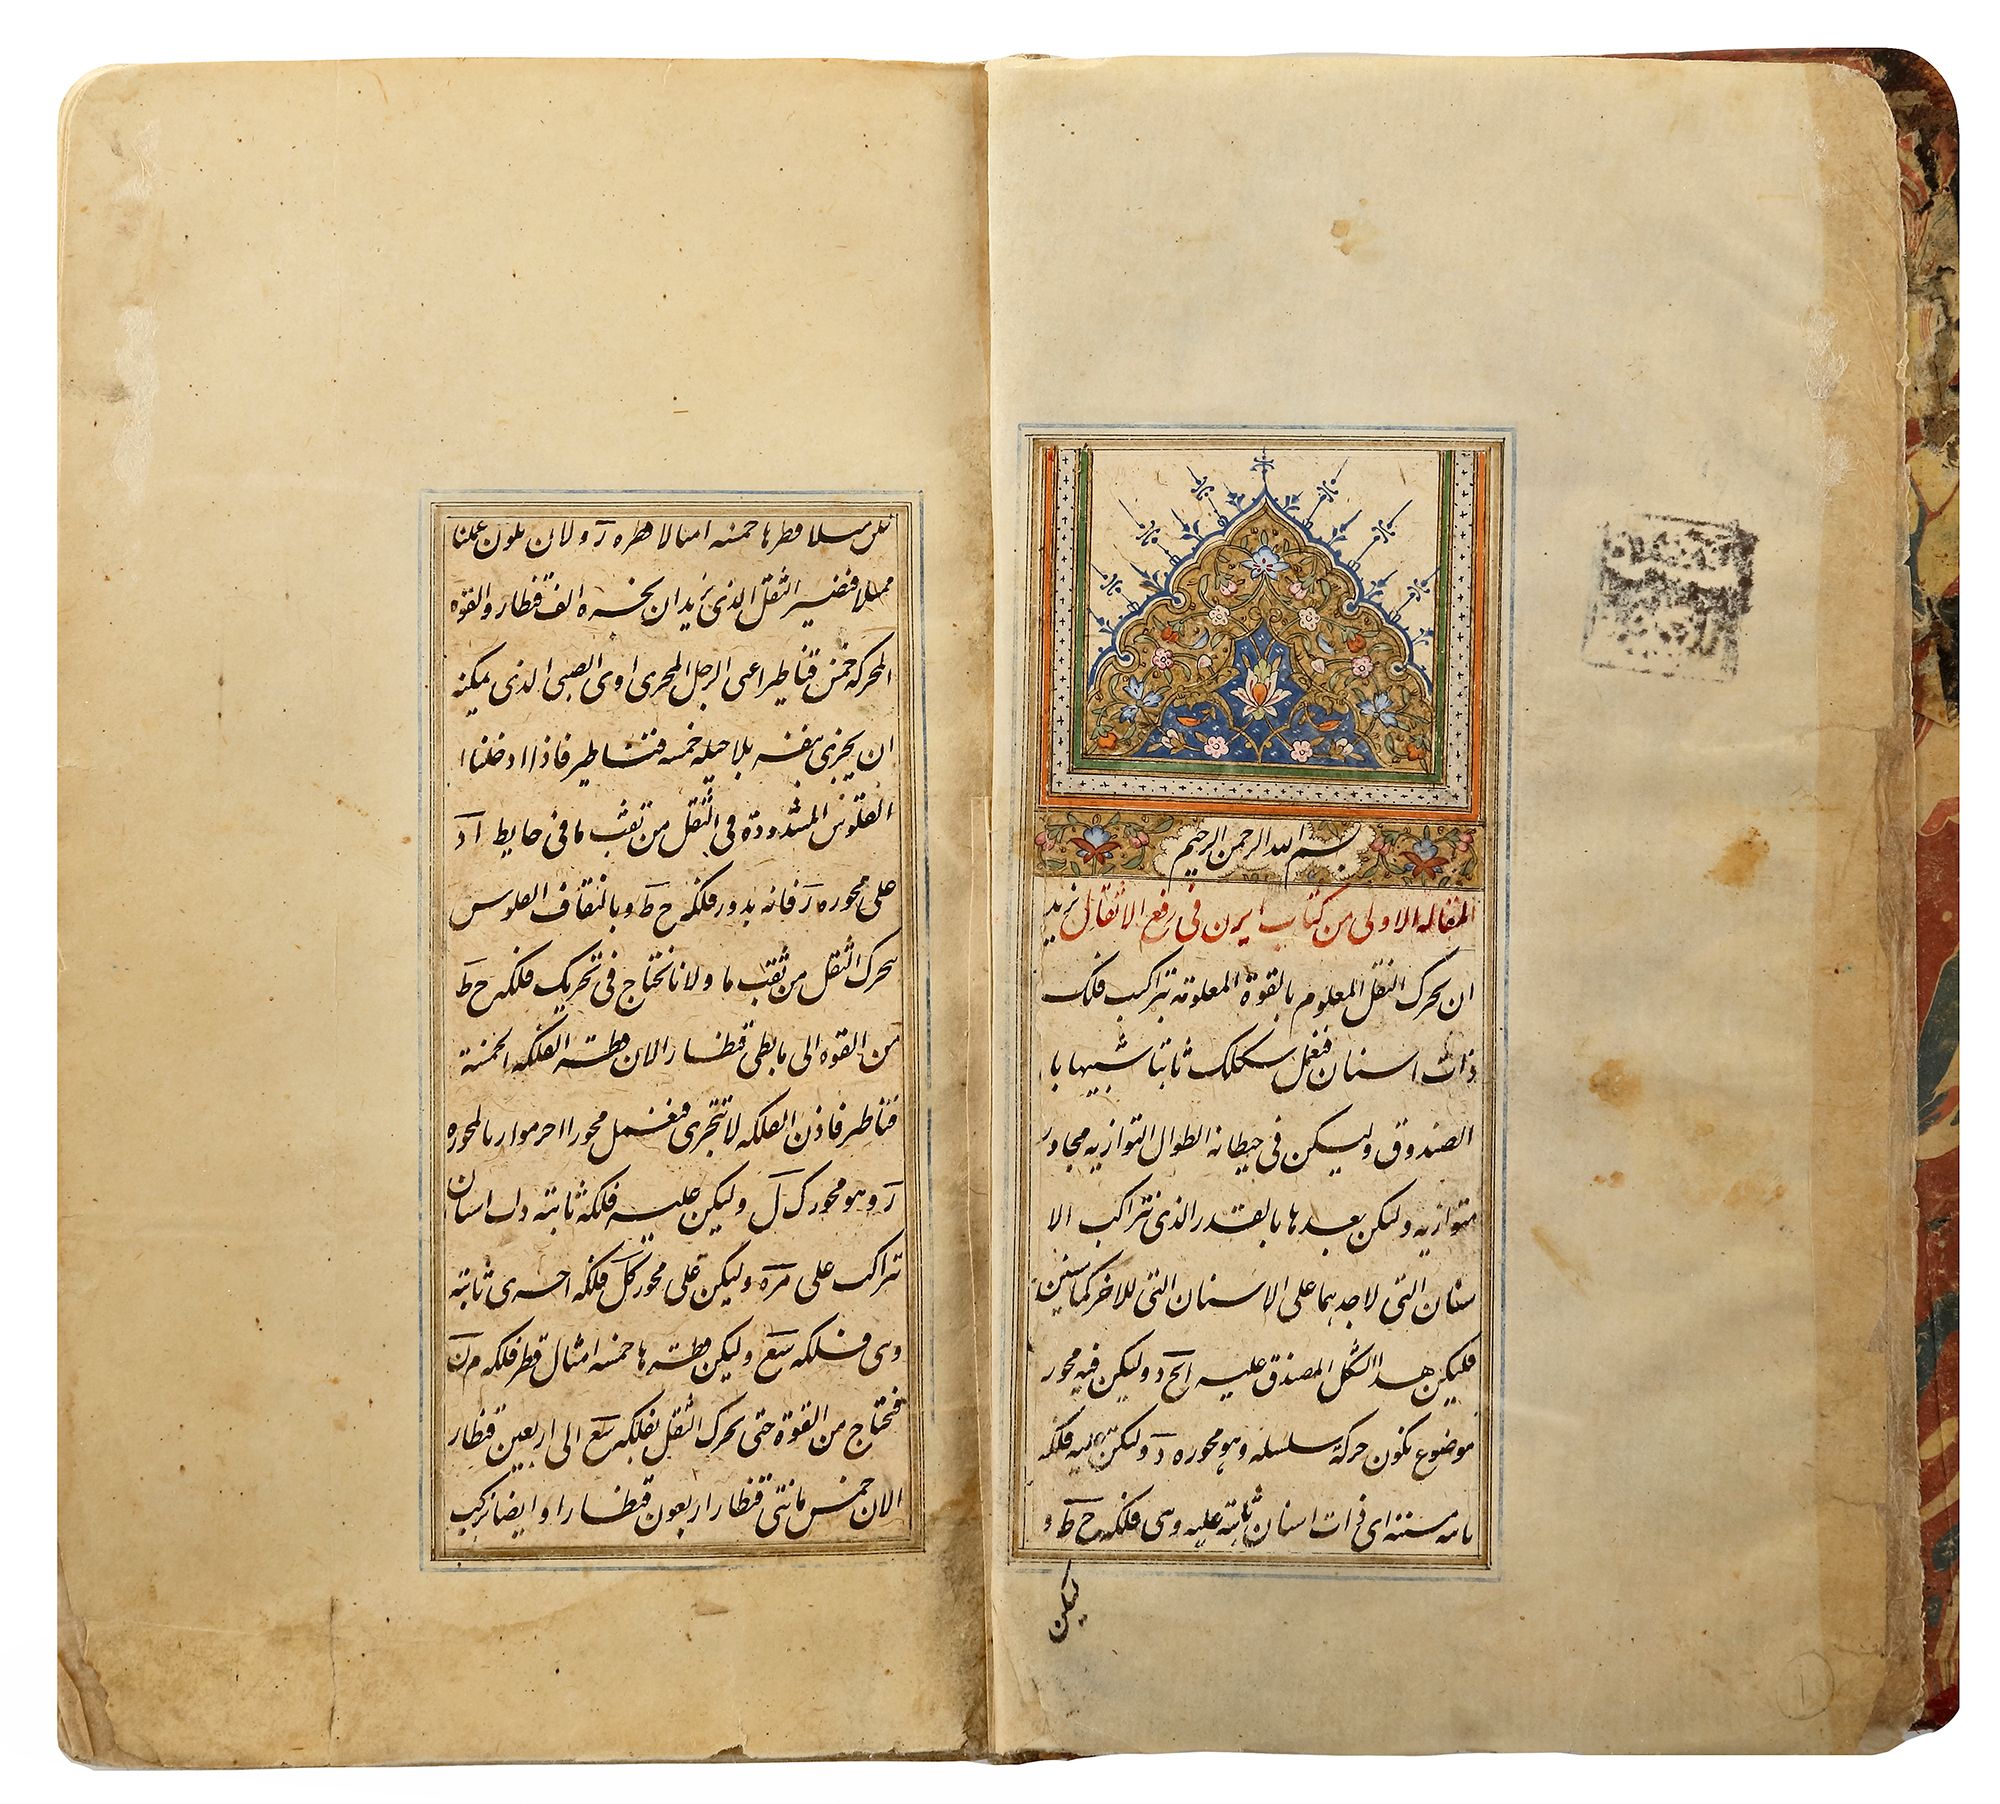 بسم الله الرحمن الرحيم
المقاله الاولى من كتاب ايرن فى رفع الاثقال نريد
ان نحرك الثقل المعلوم بالقوة المعلومه بتراكيب فلك
ذات اسنان فنعمل شكلا ثابتا شبيها با
لصندوق وليكن فى حيطانه الطوال المتوازيه محاور
متوازيه وليكن بعدها بالقدر الذى تتراكب الا
سنان التى لاحدهما على الاسنان التى للاخر كما سنبين
فليكن هذا الشكل المصندق عليه ابجد وليكن فيه محور
موضوع تكون حركة سلسله وهو محوره ر وليكن عليه فلكه
مسننه اى ذات اسنان ثابته عليه وهى فلكه ح ط و
ليكن
ليكن مثلا قطرها خمسه امثالا قطره ر ولان يكون عملنا
مثلا فنصير الثقل الذى نريد ان نجره الف قنطار والقوه
المحركه خمس قناطير اعنى الرجل المحرى اوى الصبى الذى يمكنه
ان يجزى بنفسه بلا حيله خمسه قناطير فاذا ادخلنا ا
لقلوس المشدودة فى الثقل من ثقب ما فى حايط اد
على محوره ر فانه يدور فلكه ح ط وبالتفاف القلوس
يتحرك الثقل من ثقب ما ولانا نحتاج فى تحريك فلكه ح ط
من القوه الى مايطى قنطار الان قطر الفلكه الخمسة
قناطير فاذن الفلكه لا تتجرى فنعمل محورا اخر موازيا لمحوره
ر وهو محور ك ل وليكن عليه فلكه ثابته ذات اسنان
تتراكب على م ن وليكن على محور ك ل فلكه اخرى ثابته
وهى فلكه س ع وليكن قطرها خمسه امثال قطر فلكه م ن
فنحتاج من القوة حتى نحرك الثقل بفلكه س ع الى اربعين قنطار
الان خمس مائتى قنطار اربعون قنطارا وايضا نركب